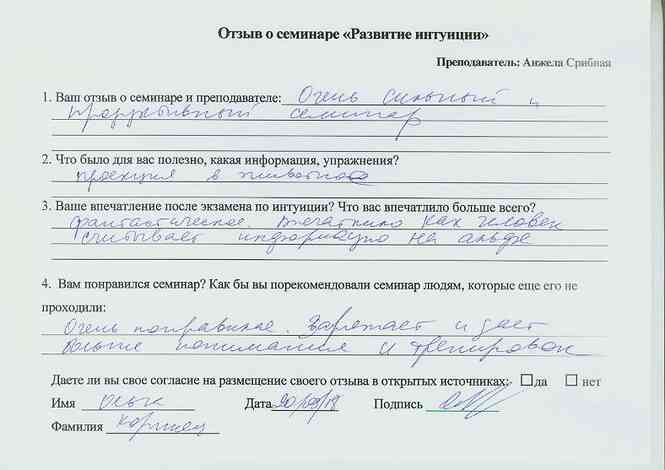 Отзыв о семинаре «Развитие интуиции»
Преподаватель: Анжела Срибная
1. Ваш отзыв о семинаре и преподавателе: Очень сильный и
продуктивный семинар
2. Что было для вас полезно, какая информация, упражнения?
проекция в животное
3. Ваше впечатление после экзамена по интуиции? Что вас впечатлило больше всего?
Фантастическое. Впечатлило как человек
считывает информацию на альфе
4. Вам понравился семинар? Как бы вы порекомендовали семинар людям, которые еще его не
проходили:
Очень понравился. Заряжает и дает
больше понимания и тренировок
Даете ли вы свое согласие на размещение своего отзыва в открытых источниках: да нет
Имя Дата 20/09/18 Подпись
Фамилия